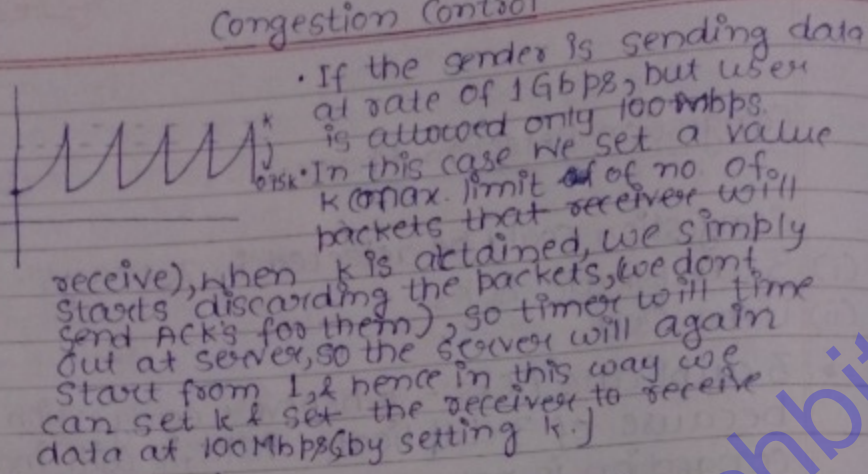 Congestion Control
• If the sender is sending data
at rate of 1Gbps, but user
is allowed only 100mbps.
k
0.75k • In this case we set a value
k (max. limit of of no of.
packets that receiver will
receive), when k is attained, we simply
starts discarding the packets, (we dont
send ACK's for them), so timer will time
out at server, so the server will again
start from 1, & hence in this way we
can set k & set the receiver to receive
data at 100Mbps(by setting k.)
hbit